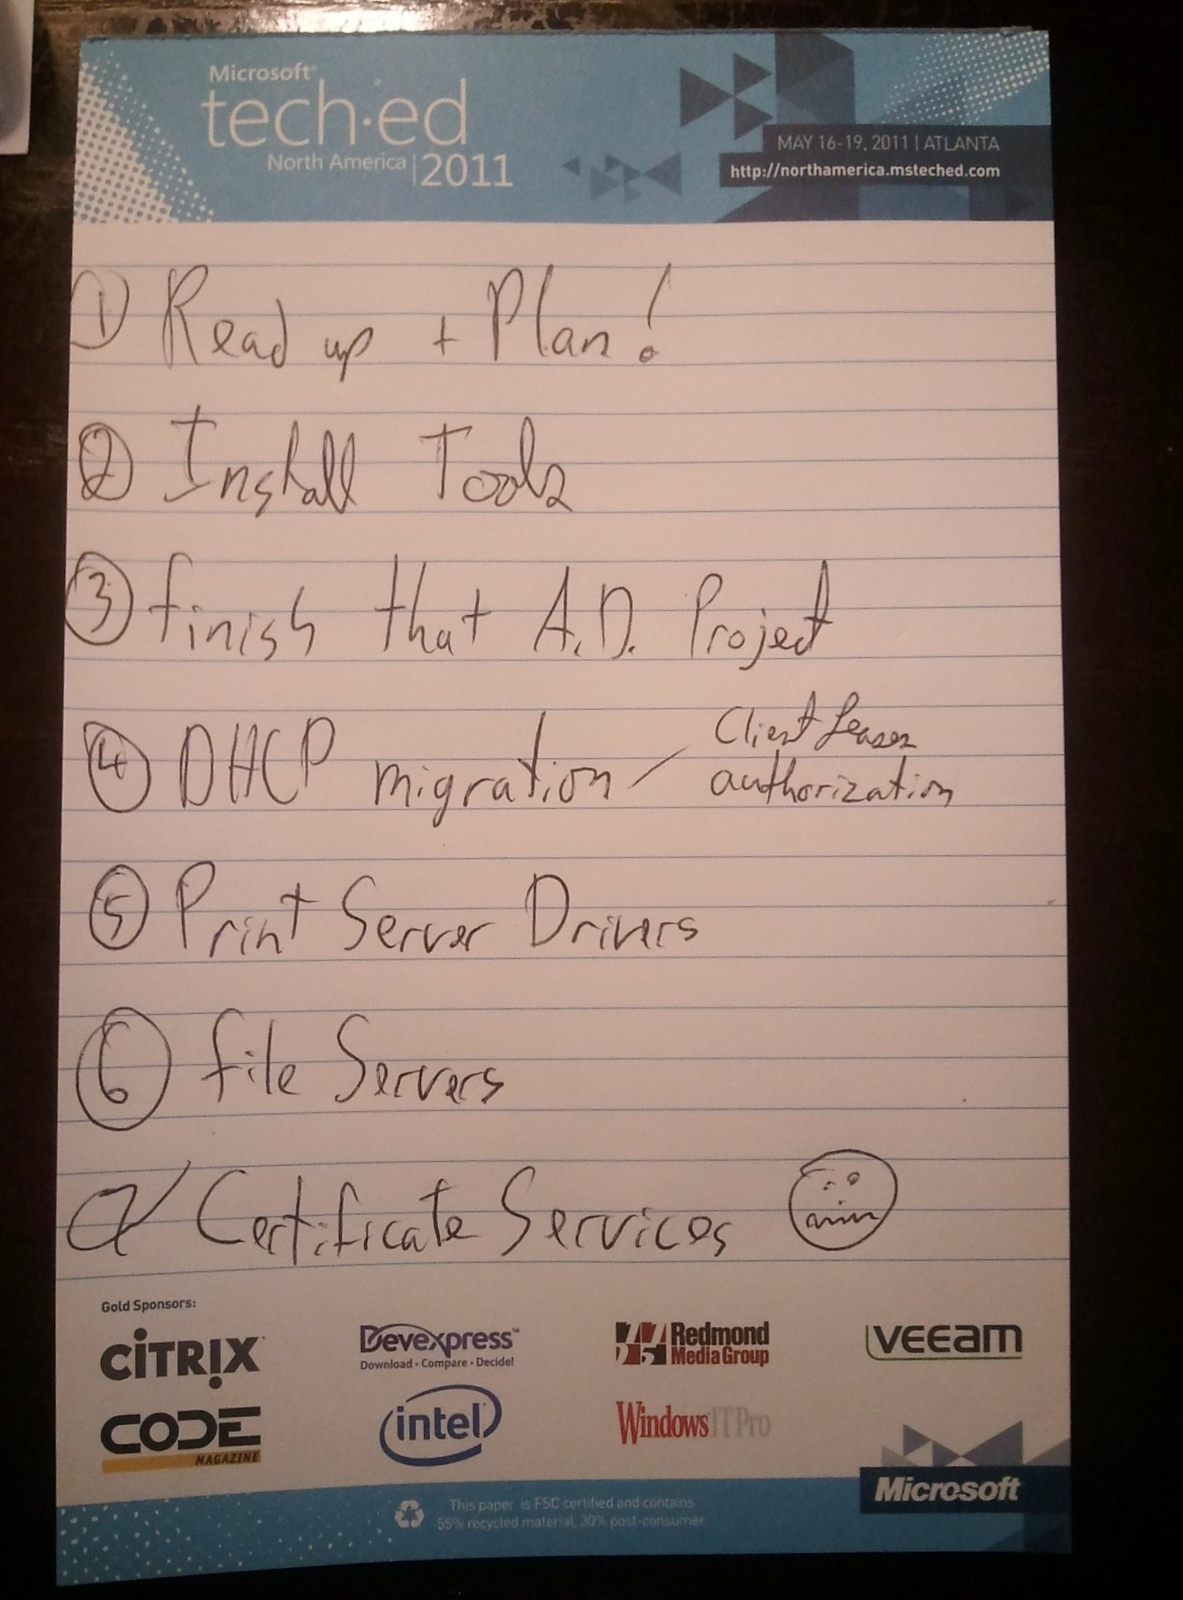 Microsoft®
tech·ed
North America | 2011
MAY 16-19, 2011 | ATLANTA
http://northamerica.msteched.com
① Read up + Plan!
② Install Tools
③ finish that A.D. Project
④ DHCP migration / Client Leases
authorization
⑤ Print Server Drivers
⑥ file Servers
Certificate Services
Gold Sponsors:
CITRIX®
DevExpress™
Download · Compare · Decide!
Redmond
Media Group
veeam
CODE
MAGAZINE
intel
Windows IT Pro
Microsoft
This paper is FSC certified and contains
55% recycled material, 30% post-consumer